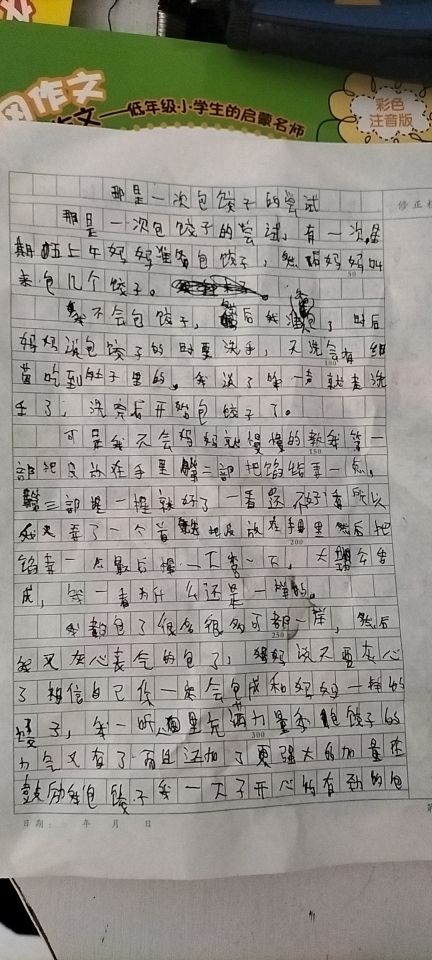 作文
作文——低年级小学生的启蒙名师
彩色
注音版
修正栏
那是一次包饺子的尝试
那是一次包饺子的尝试，有一次星
期五上午妈妈准备包饺子，然后妈妈叫
来包几个饺子。
我不会包饺子，后我准 了，时后
妈妈说包饺子的时要洗手，不洗会有细
菌吃到肚子里的。我说了 一声就去洗
手了，洗完后开始包饺子了。
可是我不会妈妈就慢慢的教我第一
部把皮放在手里第二部把馅给弄一点，
第三部捏一捏就好了一看还不好 所以
我又弄了一个首 把皮放在手里然后把
馅弄一点最后捏一下 一下，大 公告
成，我一看为什么还是一样的。
我都包了很多很多可都一样，然后
我又灰心丧气的包了，妈妈说不要灰心
了相信自己你一定会包成和妈妈一样的
饺子，我一听 里充满力量 饺子的
力气又有了而且还加了更强大的加量在
鼓励我包饺子我一下子开心的有劲的包
50
100
150
200
250
300
日期： 年 月 日